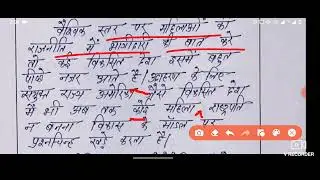 वैश्विक स्तर पर महिलाओं का
राजनीति में भागीदारी की बात करें
तो कई विकसित देश इसमें बहुत
पीछे नजर आते हैं। उदाहरण के लिए
संयुक्त राज्य अमेरिका जैसे विकसित देश
में भी अब तक कोई महिला राष्ट्रपति
न बनना विकास के मॉडल पर
प्रश्नचिन्ह खड़े करता है।
V RECORDER